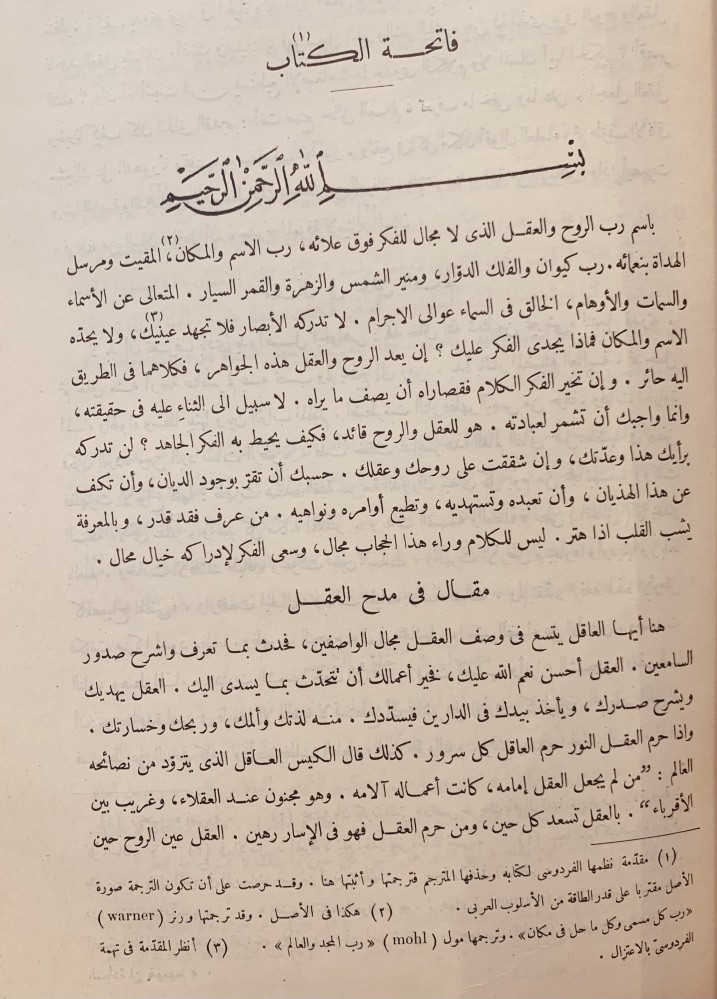 فاتحة الكتاب (١)
بسم الله الرحمن الرحيم
باسم رب الروح والعقل الذى لا مجال للفكر فوق علائه، رب الاسم والمكان(٢)، المقيت ومرسل
الهداة بنعمائه. رب كيوان والفلك الدوّار، ومنير الشمس والزهرة والقمر السيار . المتعالى عن الأسماء
والسمات والأوهام، الخالق فى السماء عوالى الاجرام . لا تدركه الأبصار فلا تجهد عينيك(٣)، ولا يحدّه
الاسم والمكان فماذا يجدى الفكر عليك ؟ إن يعد الروح والعقل هذه الجواهر ، فكلاهما فى الطريق
اليه حائر . وإن تخير الفكر الكلام فقصاراه أن يصف ما يراه . لا سبيل الى الثناء عليه فى حقيقته،
وانما واجبك أن تشمر لعبادته . هو للعقل والروح قائد، فكيف يحيط به الفكر الجاهد ؟ لن تدركه
برأيك هذا وعدّتك، وإن شققت على روحك وعقلك . حسبك أن تقرّ بوجود الديان، وأن تكف
عن هذا الهذيان ، وأن تعبده وتستهديه، وتطيع أوامره ونواهيه . من عرف فقد قدر، وبالمعرفة
يشب القلب اذا هتر . ليس للكلام وراء هذا الحجاب مجال، وسعى الفكر لإدراكه خيال محال .
مقال فى مدح العقل
هنا أيها العاقل يتسع فى وصف العقل مجال الواصفين، فحدث بما تعرف واشرح صدور
السامعين . العقل أحسن نعم الله عليك، فخير أعمالك أن تتحدّث بما يسدى اليك . العقل يهديك
ويشرح صدرك، ويأخذ بيدك فى الدارين فيسدّدك . منه لذتك وألمك، وربحك وخسارتك .
واذا حرم العقل النور حرم العاقل كل سرور . كذلك قال الكيس العاقل الذى يتزوّد من نصائحه
العالم : ”من لم يجعل العقل إمامه، كانت أعماله آلامه . وهو مجنون عند العقلاء، وغريب بين
الأقرباء“ . بالعقل تسعد كل حين، ومن حرم العقل فهو فى الإسار رهين . العقل عين الروح حين
(١) مقدّمة نظمها الفردوسى لكتابه وحذفها المترجم فترجمتها وأثبتها هنا . وقد حرصت على أن تكون الترجمة صورة
الأصل مقتربا على قدر الطاقة من الأسلوب العربى . (٢) هكذا فى الأصل . وقد ترجمتها ورنر (warner)
«رب كل مسمى وكل ما حل فى مكان» . وترجمها مول (mohl) «رب المجد والعالم» . (٣) أنظر المقدّمة فى تهمة
الفردوسىّ بالاعتزال .